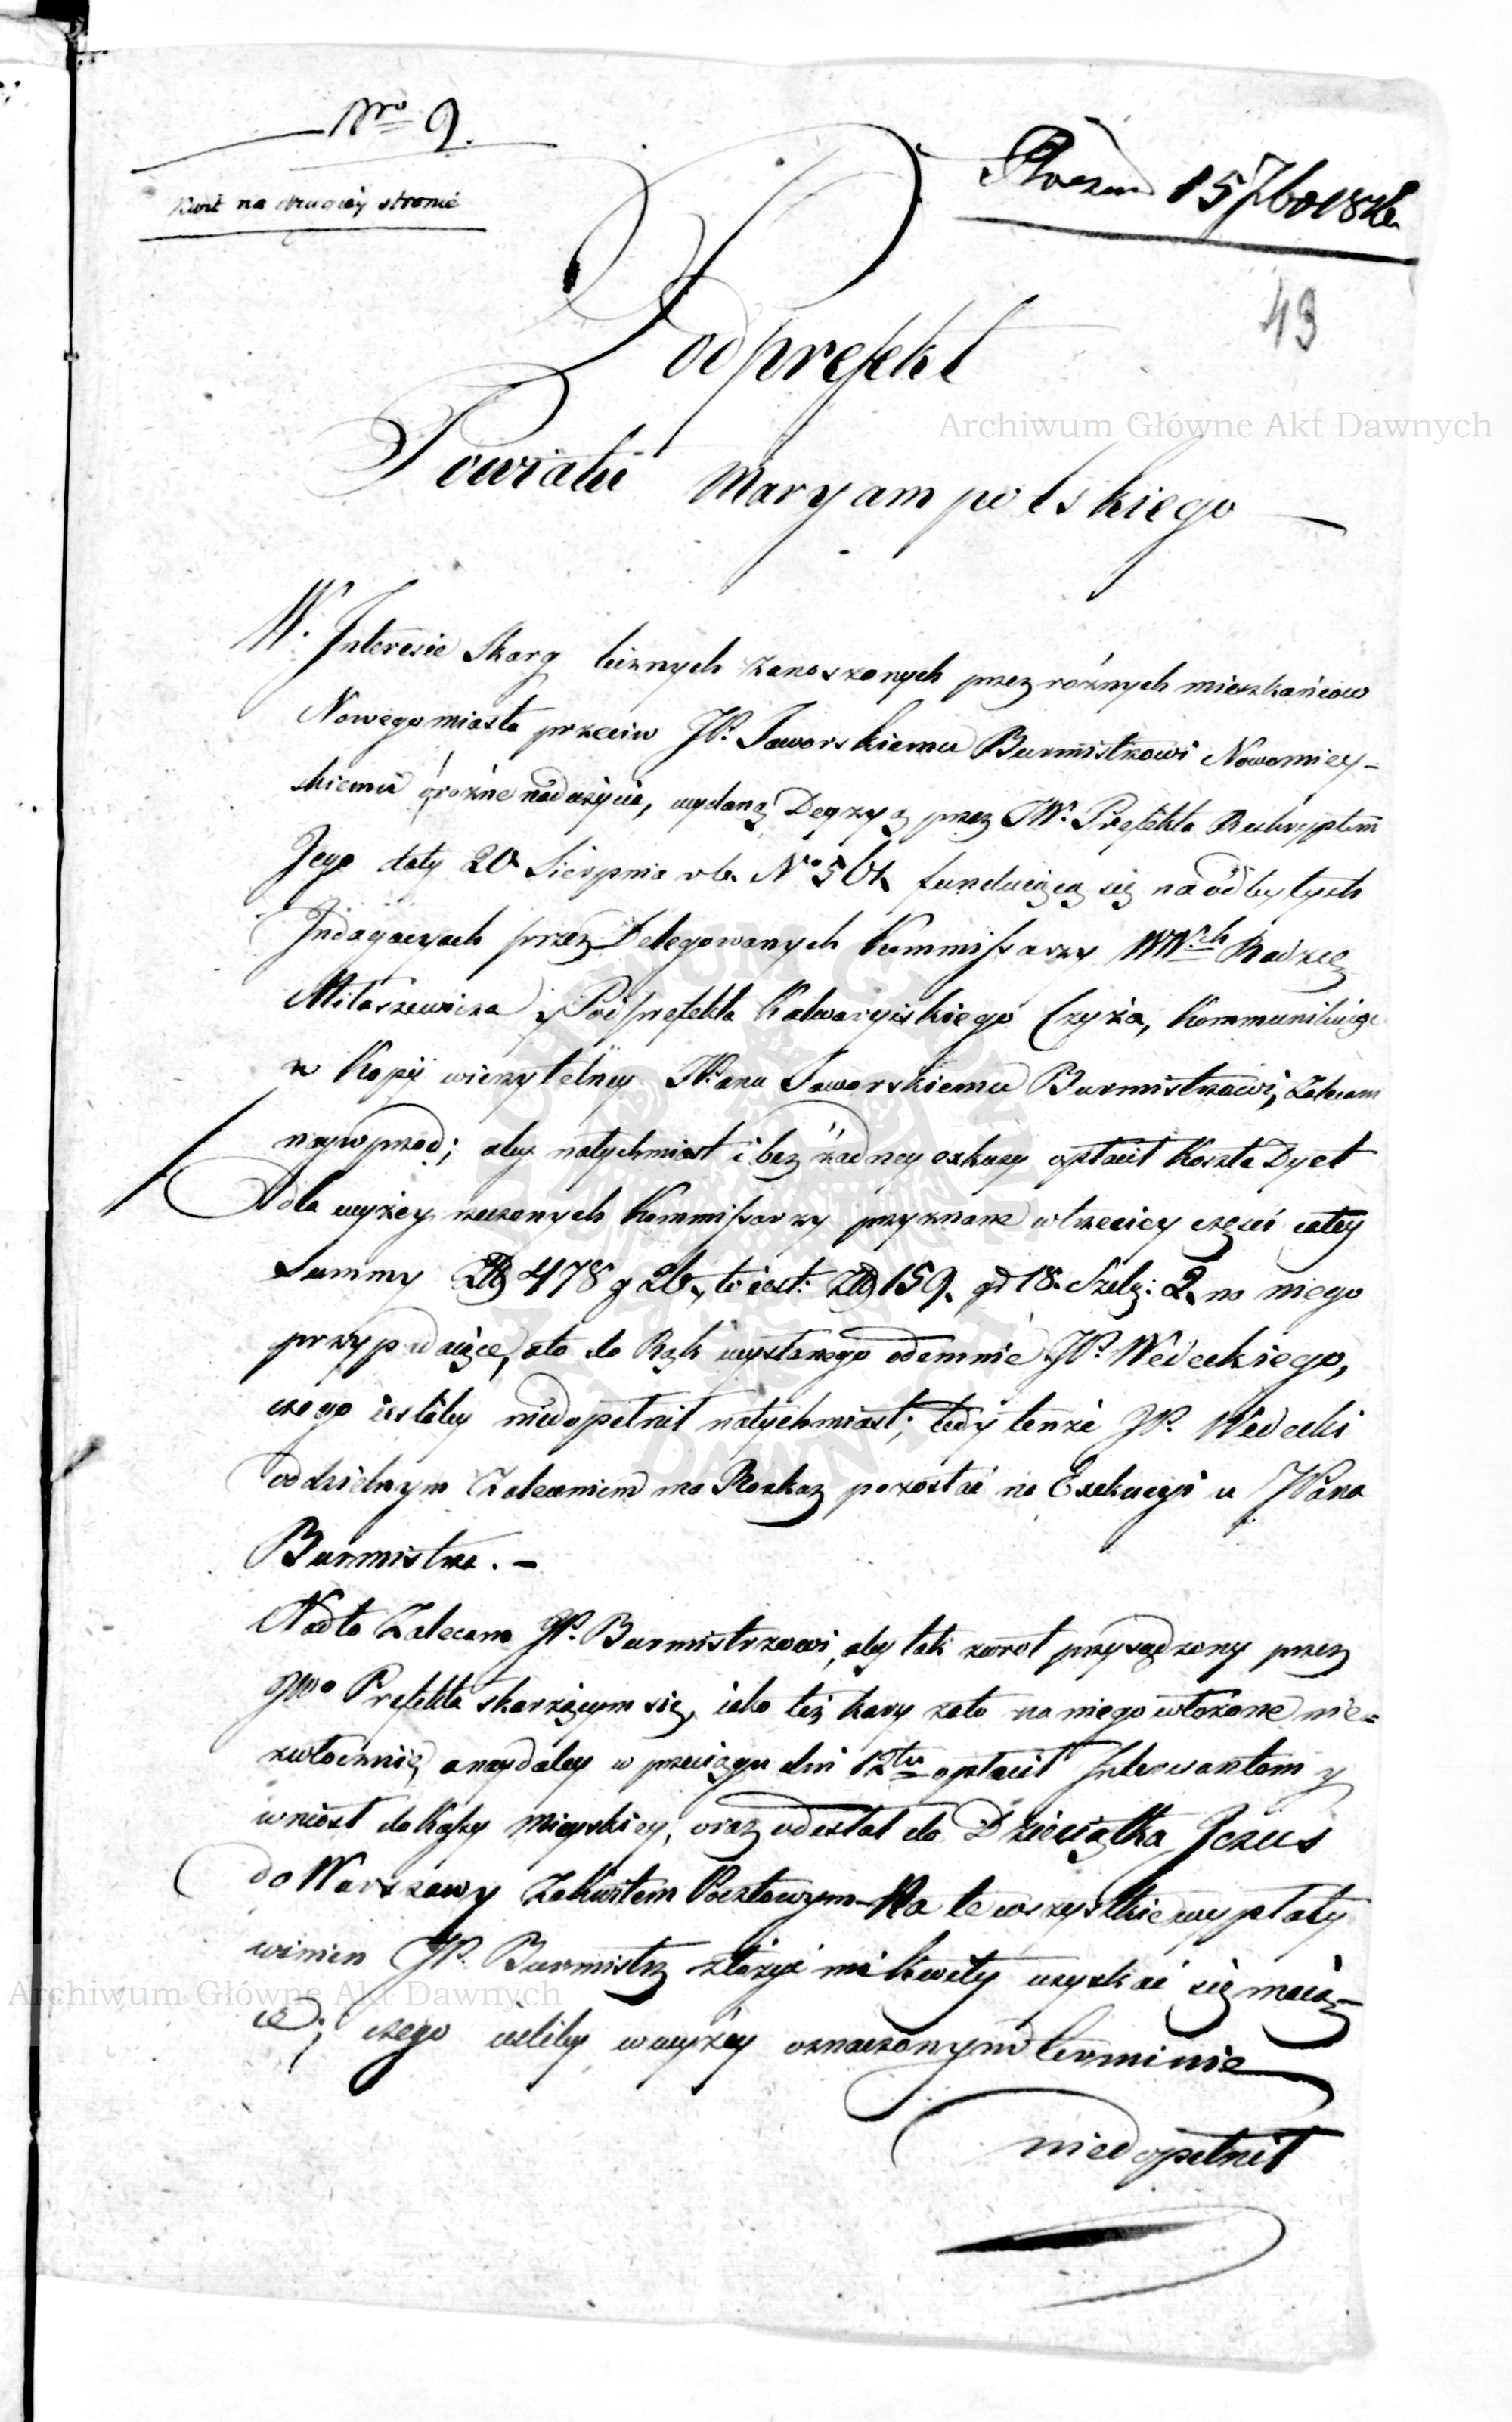 Nro 9.
Kwit na drugiey stronie
15 7br 1812
43
Podprefekt
Powiatu Maryampolskiego
W. Interesie Skarg licznych zanoszonych przez różnych mieszkańcow
Nowegomiasta przeciw JP. Jaworskiemu Burmistrzowi Nowomiey-
skiemu o różne nadużycia, wydaną Decyzyą przez JW. Prefekta Reskryptem
Jego daty 20 Sierpnia r b. No funduiącą się na odbytych
Indagacyach przez Delegowanych Kommissarzy WWch Radzcę
Miłaszewicza y Podprefekta Kalwaryiskiego Czyża, Kommunikuiąc
w Kopij wierzytelney JPanu Jaworskiemu Burmistrzowi, Zalecam
naywprzod; aby natychmiast i bez żadney exkuzy opłacił Koszta Dyet
dla wyżey rzeczonych Kommissarzy przyznane w trzeciey części całey
Summy Złł 478 g 26, to iest: Złł 159. gr 18. Szelg: 2. na niego
przypadaiące, a to do Rąk wysłanego odemnie JP. Wedeckiego,
czego ieśliby niedopełnił natychmiast; tedy tenże JP. Wedecki
oddzielnym Zaleceniem ma Rozkaz pozostać na Exekucyi u JPana
Burmistrza. -
Nadto Zalecam JP. Burmistrzowi, aby tak zwrot przysądzony przez
JWo Prefekta skarżącym się, iako też kary za to na niego włożone nie=
zwłocznie, a naydaley w przeciągu dni 12tu opłacił Interesantom y
wniosł do Kassy Mieyskiey, oraz odesłał do Dzieciątka Jezus
do Warszawy Zakwitem Pocztowym - Na te wszystkie wypłaty
winien JP. Burmistrz złożyć mi kwity uzyskać się maią-
ce; czego ieśliby w wyżey oznaczonym terminie
niedopełnił
Archiwum Główne Akt Dawnych
Archiwum Główne Akt Dawnych